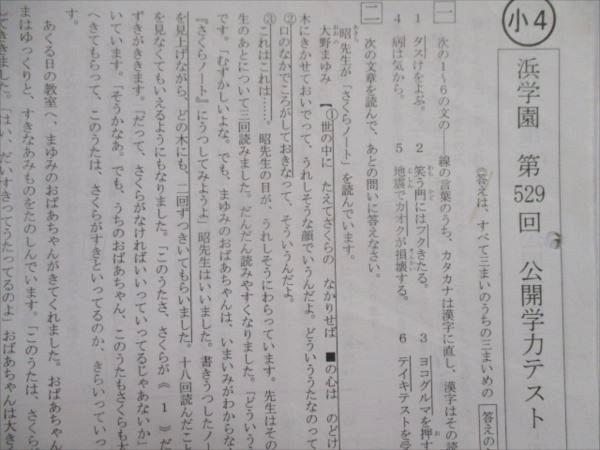 小4
浜学園 第529回 公開学力テスト
《答えは、すべて三まいのうちの三まいめの
一 次の1〜6の文の――線の言葉のうち、カタカナは漢字に直し、漢字はその読
1 タスけをよぶ。 2 笑う門にはフクきたる。 3 ヨコグルマを押す
4 病は気から。 5 地震でカオクが損壊する。 6 テイキテストを受
二 次の文章を読んで、あとの問いに答えなさい。
昭先生が「さくらノート」を読んでいます。
大野まゆみ 【①世の中に たえてさくらの なかりせば ■の心は のどけ
木にきかせておいでって、うれしそうな顔でいうんだよ。どういううたなのって
②口のなかでころがしておきなって、そういうんだよ。
③これはこれは……。昭先生の目が、うれしそうにわらっています。先生はその
生のあとについて三回読みました。だんだん読みやすくなりました。「どういう
です。「むずかしいよな。でも、まゆみのおばあちゃんは、いまいみがわからな
『さくらノート』にうつしてみようよ」昭先生はいいました。書きうつしたノー
を見上げながら、どの木にも、二回ずつきいてもらいました。十八回読んだこと
を見なくてもいえるようにもなりました。「このうたさ、さくらが《 1 》だ
ずきがききます。「だって、さくらがなければいいっていってるじゃあないか」
いています。「そうかなあ。でも、うちのおばあちゃん、このうたもさくらも大
へきてもらって、このうたは、さくらがすきといってるのか、きらいっていっ
す。
あくる日の教室へ、まゆみのおばあちゃんがきてくれました。おばあちゃん
まはゆっくりと、すきなあみものをたのしんでいます。「このうたは、さくら
てきました。「はい、だいすきってうたってるのよ」おばあちゃんは大きう